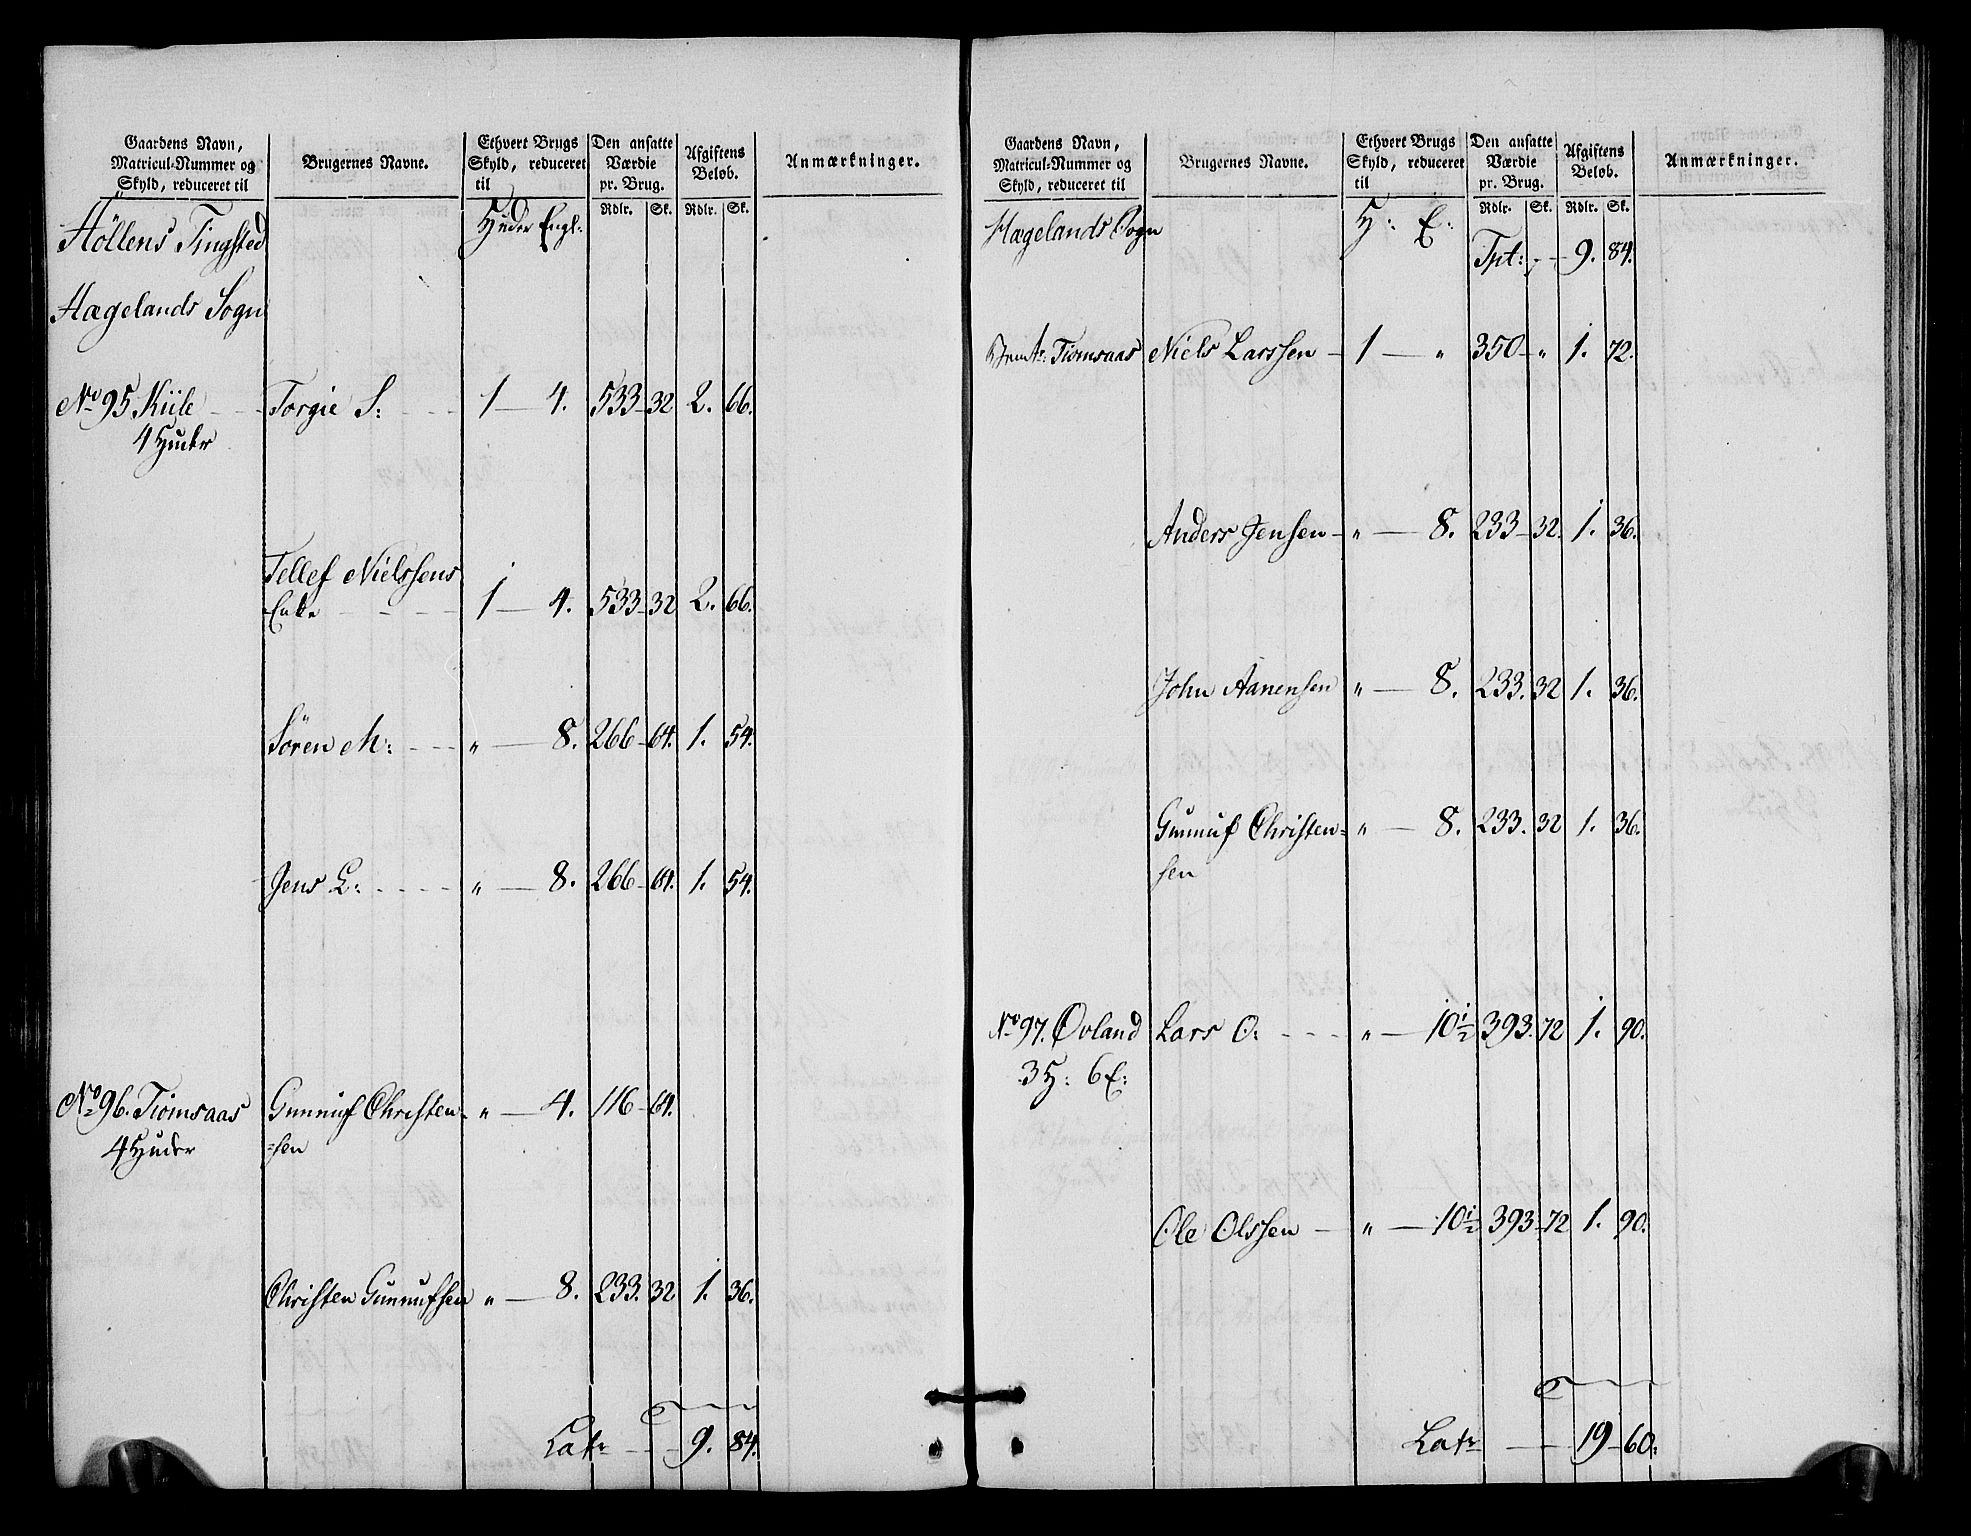 Gaardens Navn, Matricul-Nummer og Skyld, reduceret til | Brugernes Navne. | Ethvert Brugs Skyld, reduceret til | Den ansatte Værdie pr. Brug. | Afgiftens Beløb. | Anmærkninger.
Rdlr. Sk. Rdlr. Sk.
Höllens Tingsted Huder Engl:
Hægelands Sogn
No 95 Kiile - - Torgie S: - - - 1 — 4. 533 - 32 2. 66.
4 Huder
Tellef Nielssens
Enke - - - - 1 — 4. 533 - 32 2. 66.
Sören M: - - - „ — 8. 266 - 64. 1. 54.
Jens L: - - - - „ — 8. 266 - 64. 1. 54.
No 96. Tiomsaas Gunnuf Christen- „ — 4. 116 - 64.
4 Huder =sen
Christen Gunnufsen „ — 8. 233. 32 1. 36.
Latr - - - 9. 84.
Gaardens Navn, Matricul-Nummer og Skyld, reduceret til | Brugernes Navne. | Ethvert Brugs Skyld, reduceret til | Den ansatte Værdie pr. Brug. | Afgiftens Beløb. | Anmærkninger.
Rdlr. Sk. Rdlr. Sk.
Hægelands Sogn H: E:
Tpt: - - 9. 84.
Tiomsaas Niels Larssen - 1 — „ 350 - „ 1. 72.
Anders Jensen - „ — 8. 233 - 32. 1. 36.
John Aanensen „ — 8. 233. 32 1. 36.
Gunnuf Christen= „ — 8. 233. 32 1. 36.
sen
No 97. Øvland Lars O: - - - „ — 10½ 393. 72 1. 90.
3 H: 6 E:
Ole Olssen — „ — 10½ 393 - 72 1. 90.
Latr — 19 - 60.